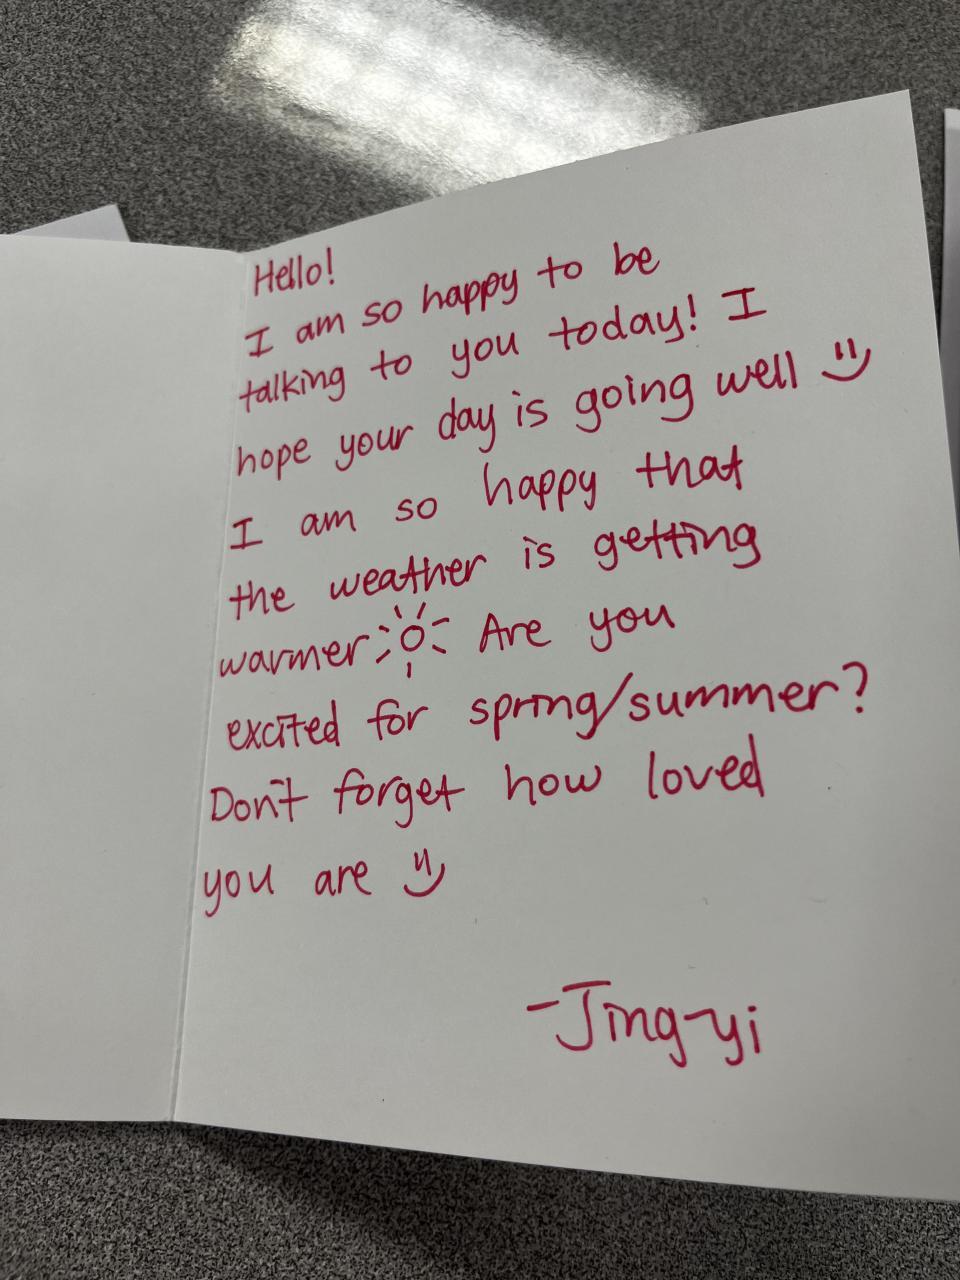 Hello!
I am so happy to be
talking to you today! I
hope your day is going well
I am so happy that
the weather is getting
warmer Are you
excited for spring/summer?
Don't forget how loved
you are
-Jing-yi